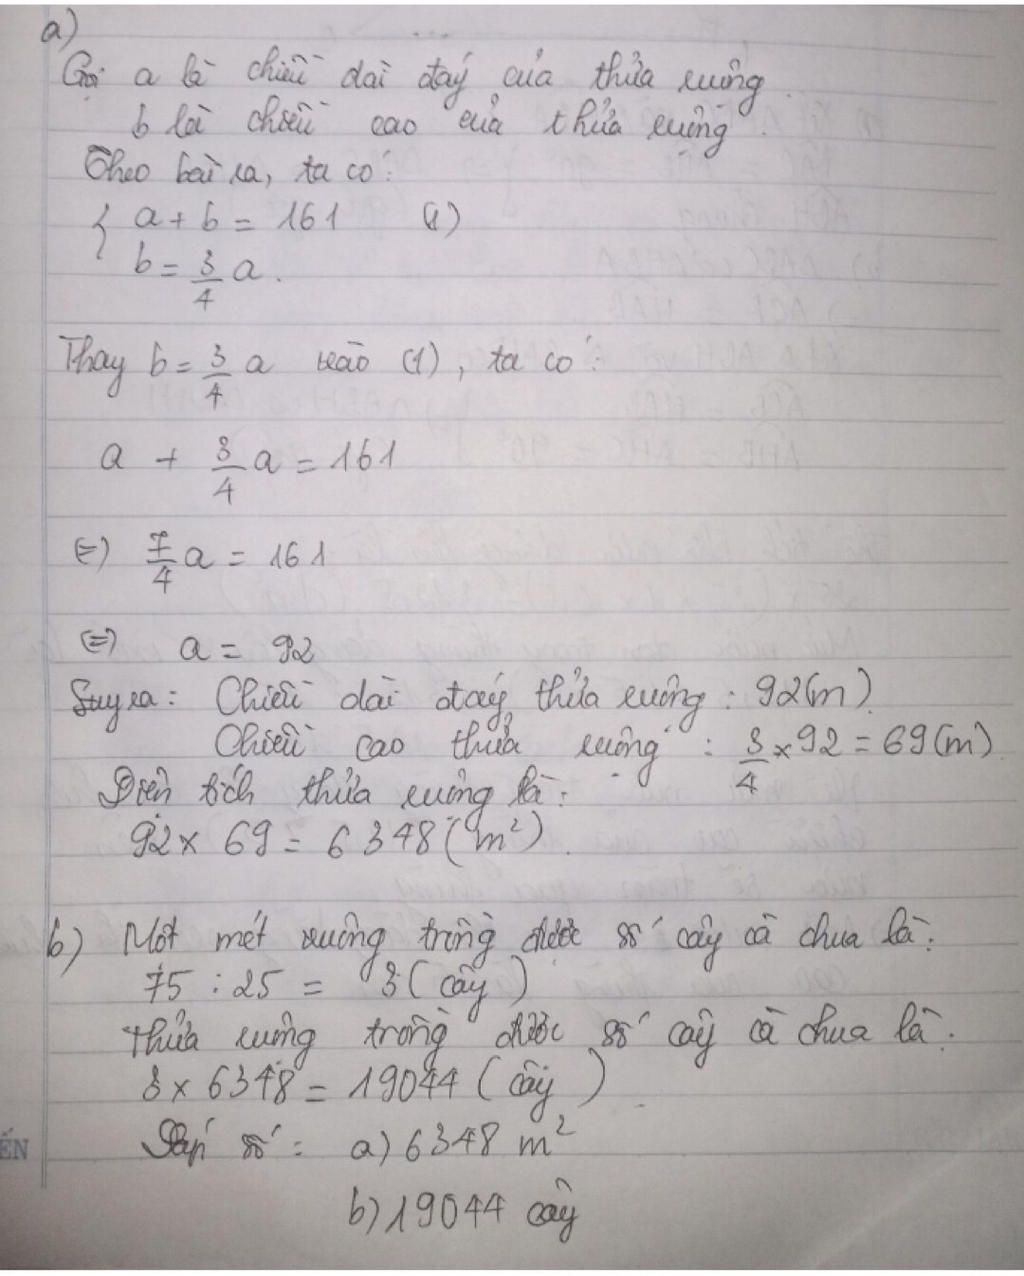 a)
Gọi a là chiều dài đáy của thửa ruộng.
b là chiều cao của thửa ruộng.
Theo bài ra, ta có:
{ a + b = 161 (1)
b = 3/4 a.
Thay b = 3/4 a vào (1), ta có:
a + 3/4 a = 161
(=) 7/4 a = 161
(=) a = 92
Suy ra: Chiều dài đáy thửa ruộng: 92(m).
Chiều cao thửa ruộng: 3/4 × 92 = 69(m)
Diện tích thửa ruộng là:
92 × 69 = 6348 (m²).
b) Một mét vuông trồng được số cây cà chua là:
75 : 25 = 3 (cây)
Thửa ruộng trồng được số cây cà chua là:
3 × 6348 = 19044 (cây)
Đáp số: a) 6348 m²
ẾN
b) 19044 cây